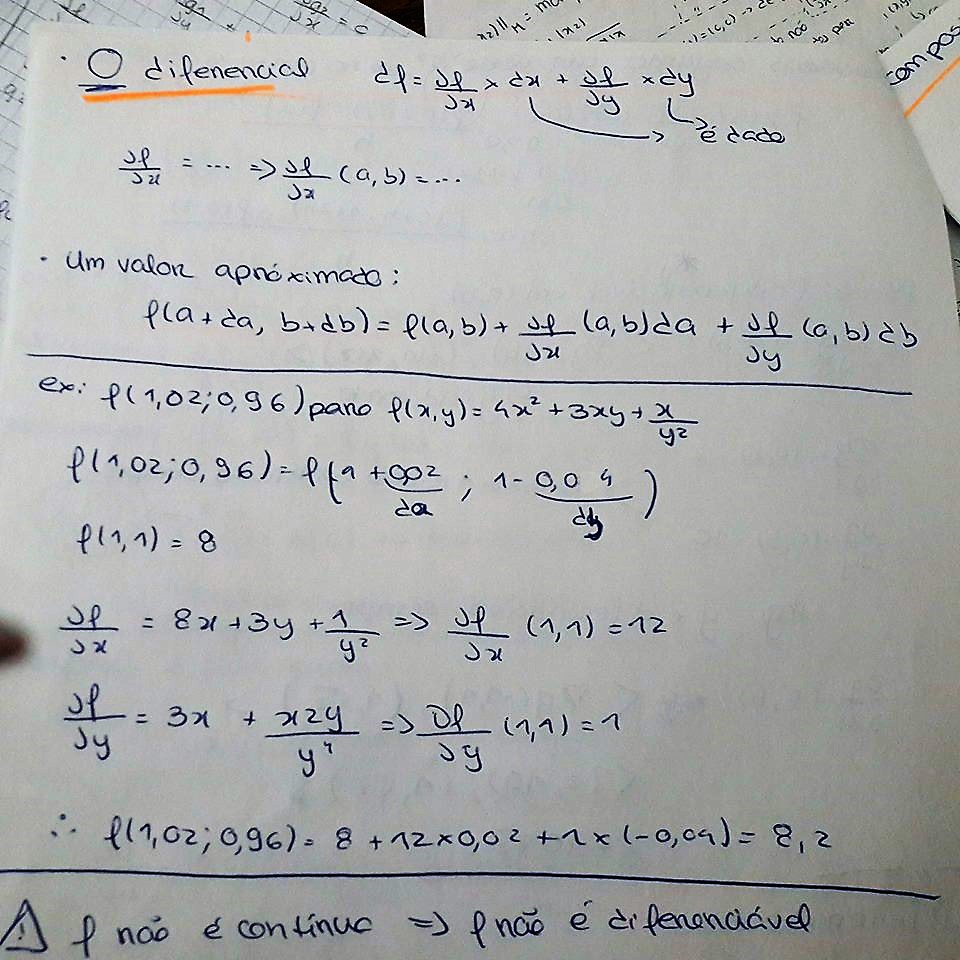 · O diferencial df = ∂f/∂x × dx + ∂f/∂y × dy
→ é dado
∂f/∂x = ... => ∂f/∂x (a,b) = ...
· Um valor apróximado:
f(a+da, b+db) = f(a,b) + ∂f/∂x (a,b) da + ∂f/∂y (a,b) db
ex: f(1,02;0,96) para f(x,y) = 4x² + 3xy + x/y²
f(1,02;0,96) = f(1 + 0,02 ; 1 - 0,04)
da dy
f(1,1) = 8
∂f/∂x = 8x + 3y + 1/y² => ∂f/∂x (1,1) = 12
∂f/∂y = 3x + x2y/y⁴ => ∂f/∂y (1,1) = 1
∴ f(1,02;0,96) = 8 + 12×0,02 + 1×(-0,04) = 8,2
⚠ f não é contínua => f não é diferenciável